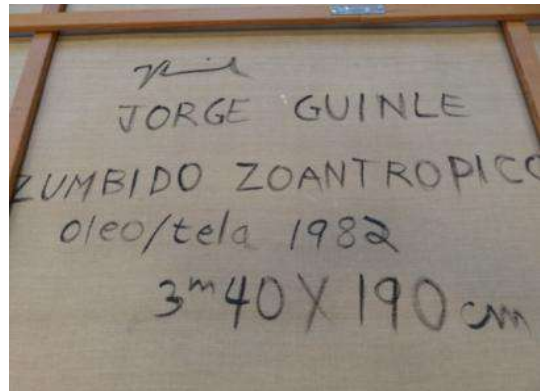 JORGE GUINLE
ZUMBIDO ZOANTROPICO
oleo/tela 1982
3m40 X 190 cm